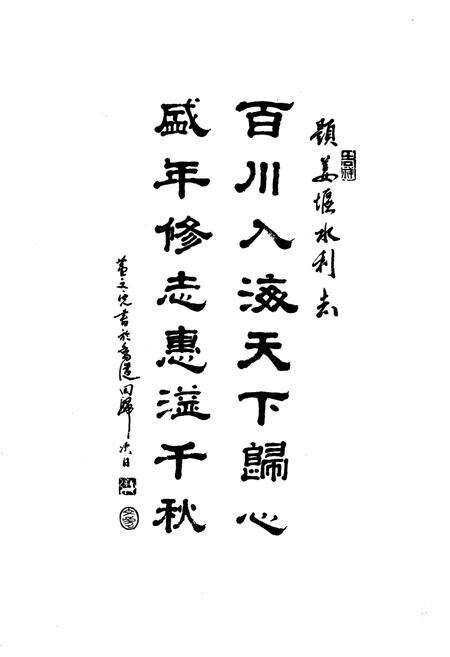 題姜堰水利志
百川入海天下歸心
盛年修志惠溢千秋
文 書於香港回歸 日